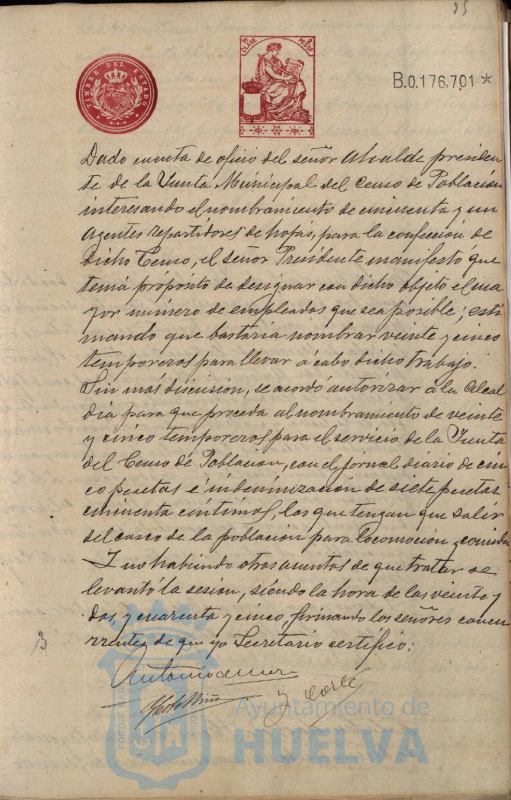 35
TIMBRE DEL ESTADO
B.0.176.701 *
Dado cuenta de oficio del señor Alcalde presiden-
te de la Junta Municipal del Censo de Población
interesando el nombramiento de cincuenta y un
Agentes repartidores de hojas, para la confección de
dicho Censo, el señor Presidente manifestó que
tenia propósito de designar con dicho objeto el ma
yor número de empleados que sea posible; esti
mando que bastaria nombrar veinte y cinco
temporeros para llevar á cabo dicho trabajo.
Sin mas discusión, se acordó autorizar á la Alcal
dia para que proceda al nombramiento de veinte
y cinco temporeros para el servicio de la Junta
del Censo de Población, con el jornal diario de cin
co pesetas é indemnización de siete pesetas
cincuenta céntimos, los que tengan que salir
del casco de la población para locomoción y comida
Y no habiendo otros asuntos de que tratar se
levantó la sesión, siendo la hora de las veinte y
dos, y cuarenta y cinco, firmando los señores concu
rrentes de que yo Secretario certifico:
Antonio
Ayuntamiento de
HUELVA